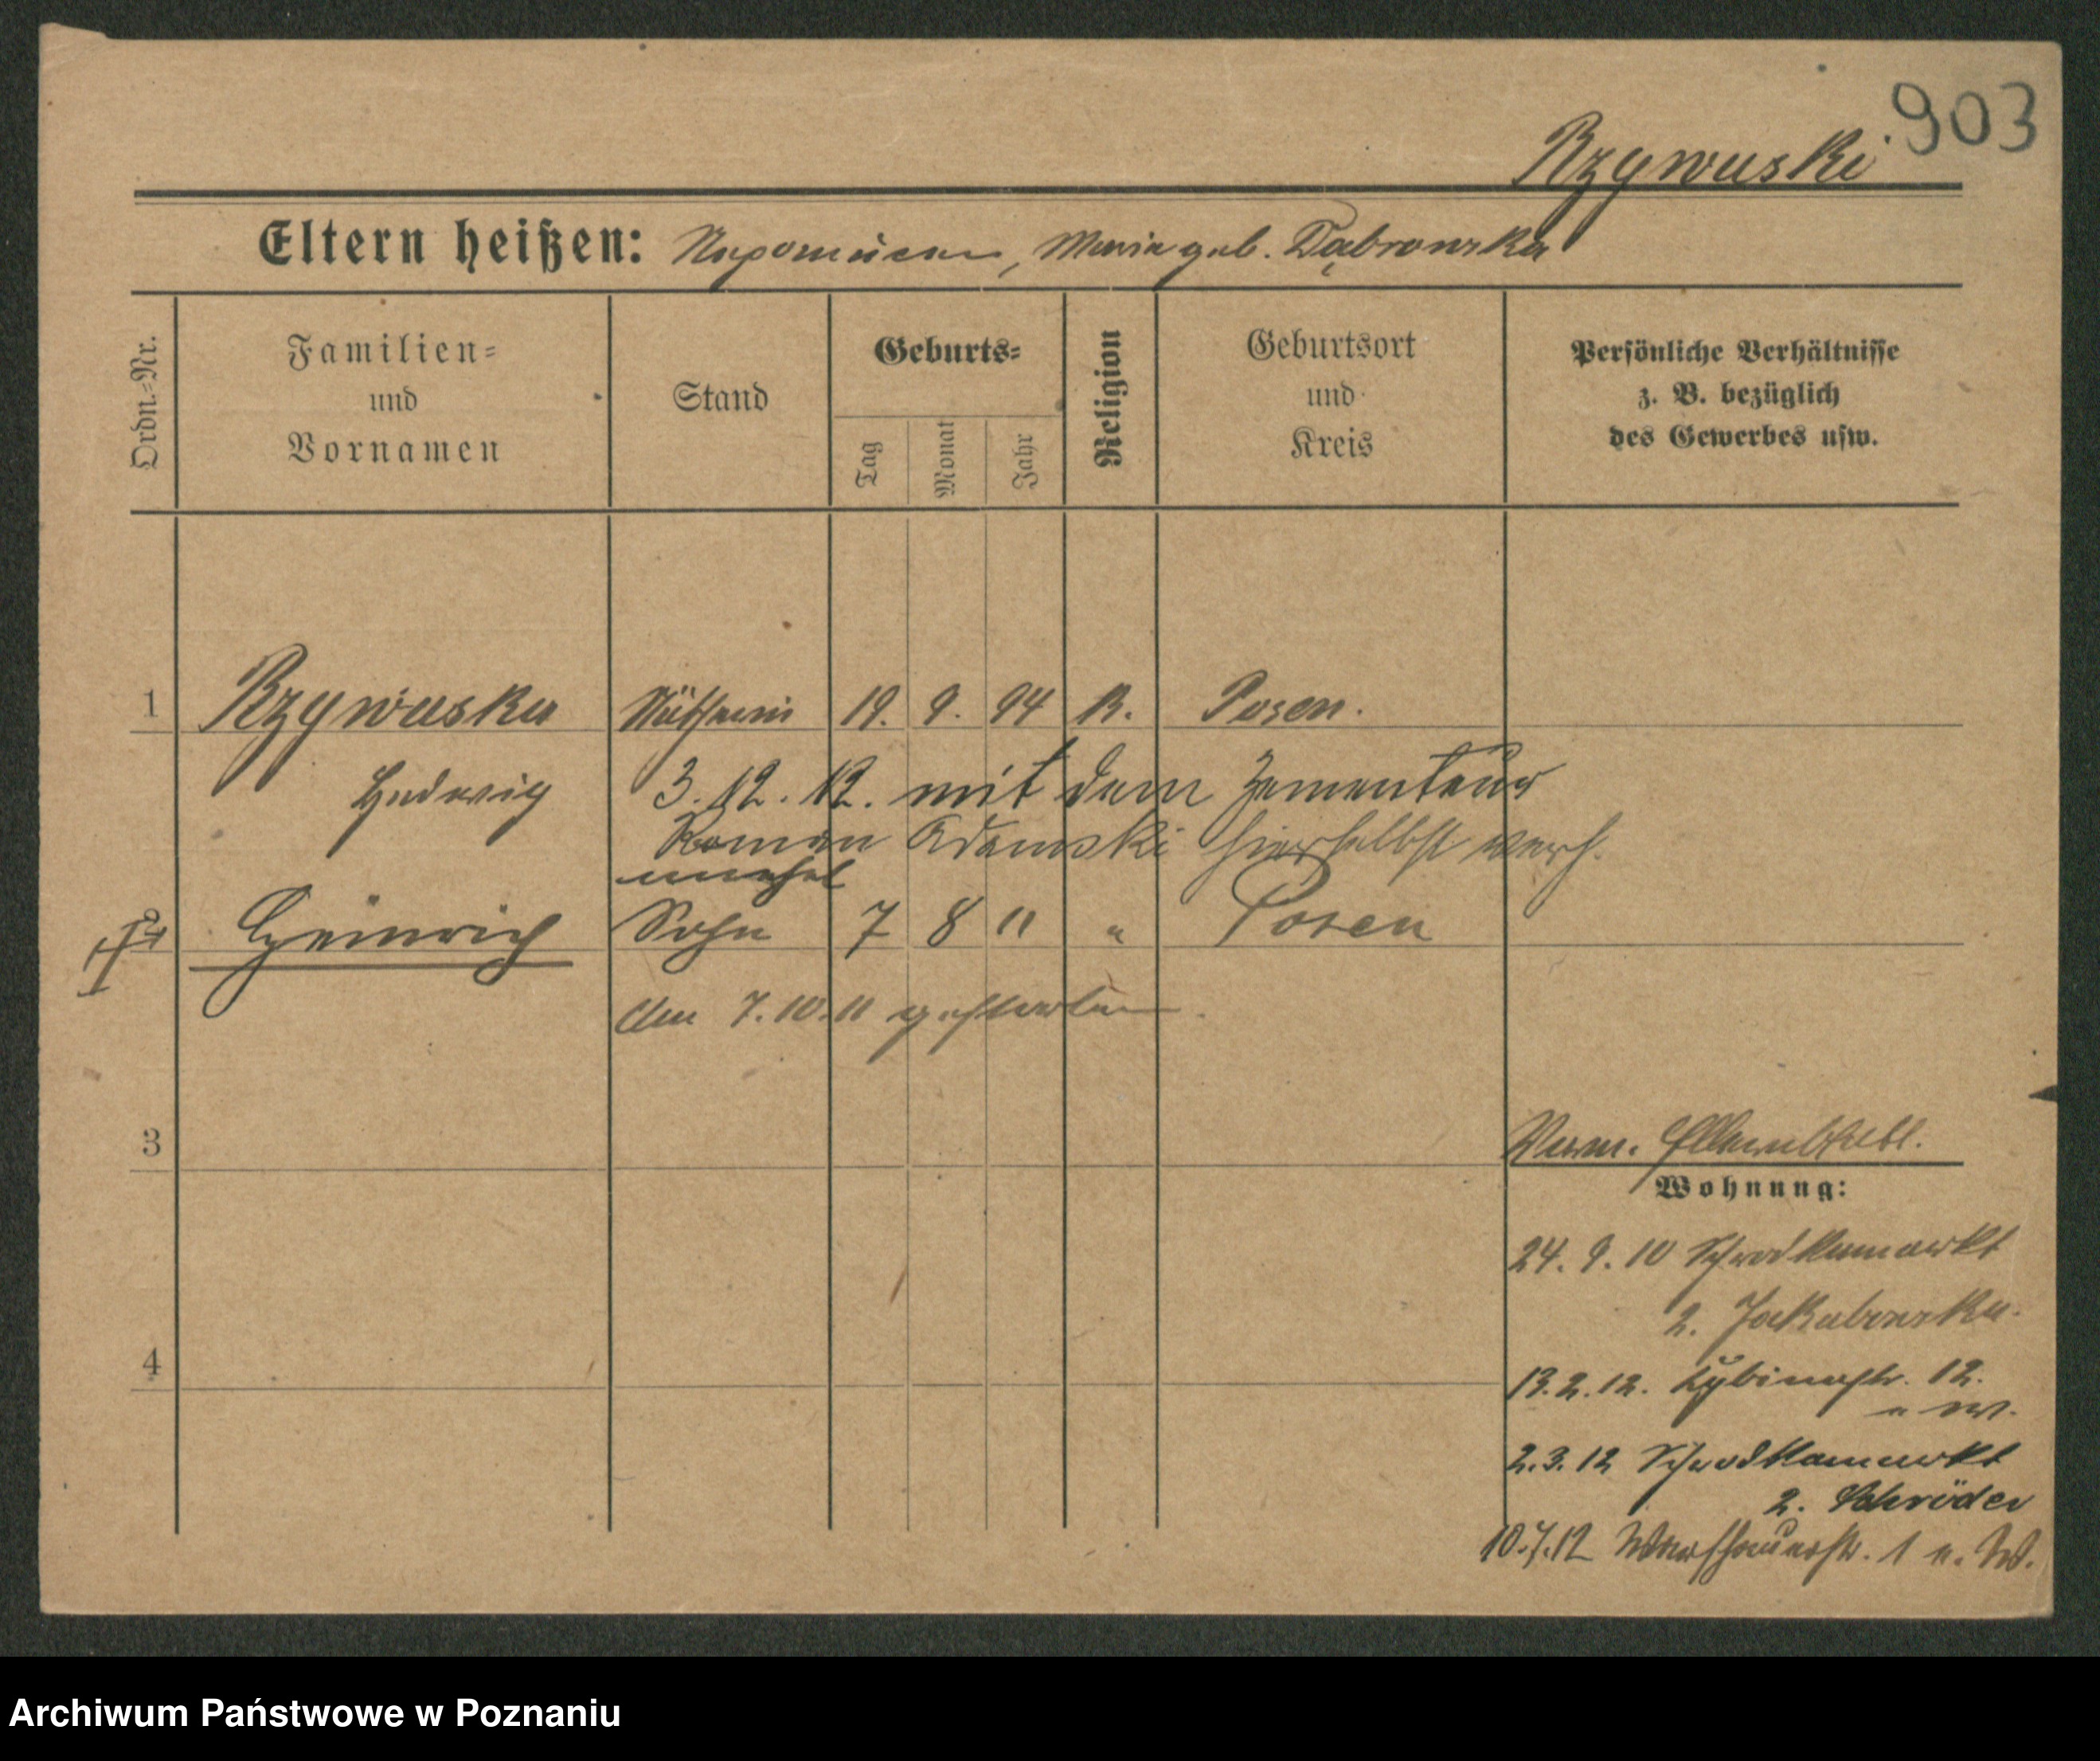 903
Rzywuski
Eltern heißen: Nepomucen, Maria geb. Dąbrowska
Ordn.=Nr.
Familien=
und
Vornamen
Stand
Geburts=
Tag
Monat
Jahr
Religion
Geburtsort
und
Kreis
Persönliche Verhältnisse
z. B. bezüglich
des Gewerbes usw.
1 Rzywuska Näherin 19. 9. 94 K. Posen.
Hedwig 3. 12. 12. mit dem Zementeur
Roman Adamski hierselbst verh.
unehel
2 Heinrich Sohn 7 8 11 " Posen
Am 7.10.11 gestorben.
3
Wohnung:
24. 9. 10 Schrodkamarkt
2. Jakubowska.
4
13.2.12. Cybinastr. 12.
2.3.12 Schrodkamarkt
2. Schröder
10.7.12 Warschauerstr. 1 n. W.
Archiwum Państwowe w Poznaniu